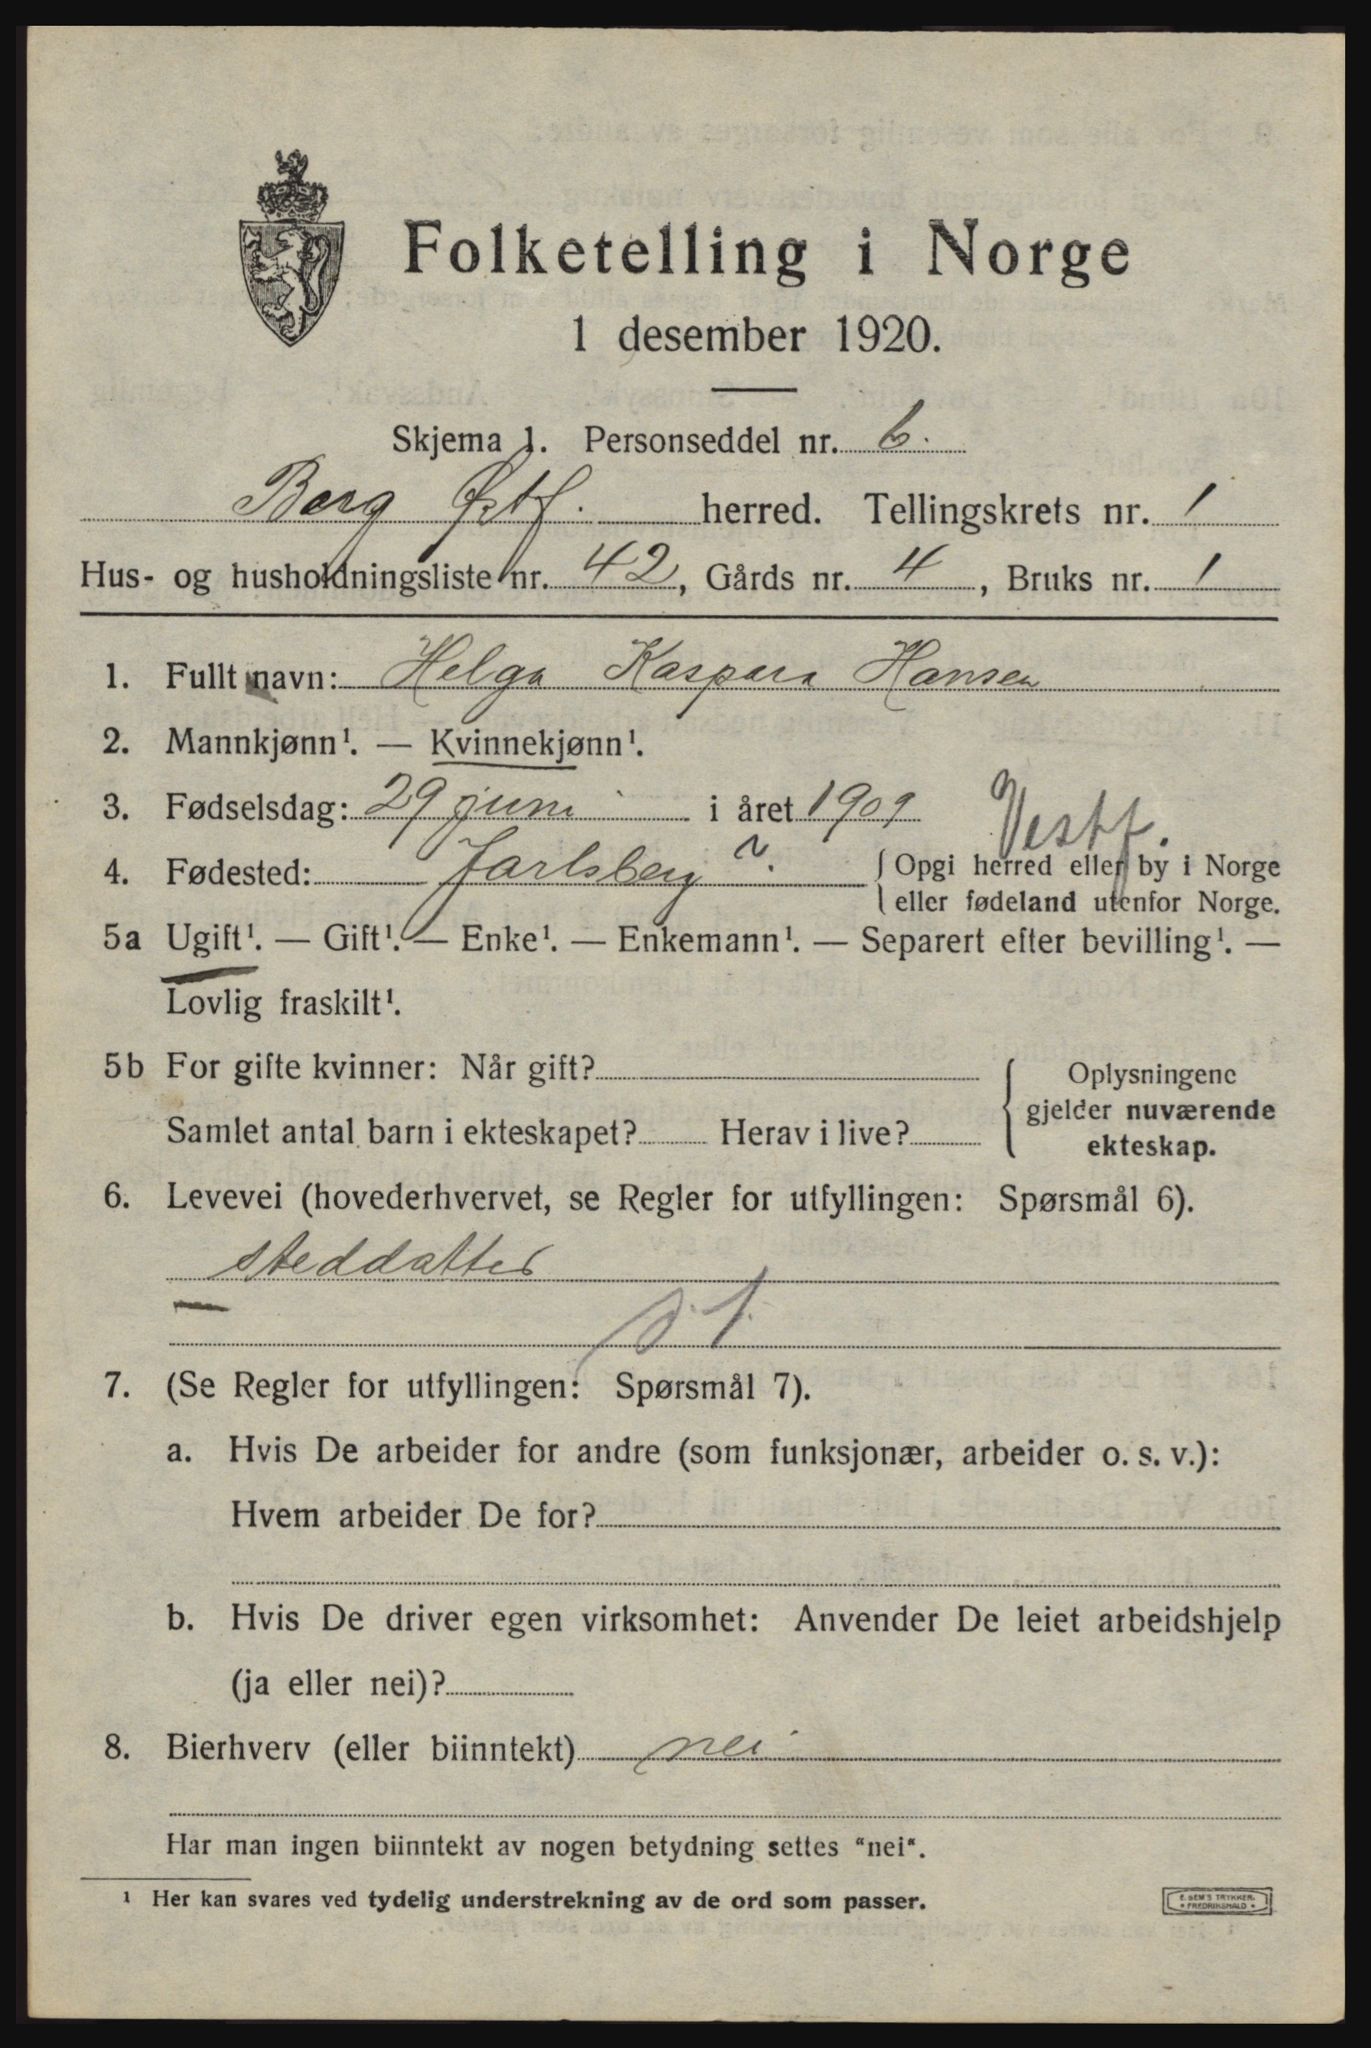 Folketelling i Norge
1 desember 1920.
Skjema 1. Personseddel nr. 6.
Berg Østf. herred. Tellingskrets nr. 1
Hus- og husholdningsliste nr. 42, Gårds nr. 4, Bruks nr. 1
1. Fullt navn: Helga Kaspara Hansen
2. Mannkjønn¹. — Kvinnekjønn¹.
3. Fødselsdag: 29 juni i året 1909
Vestf.
4. Fødested: Jarlsberg ?. { Opgi herred eller by i Norge
eller fødeland utenfor Norge.
5a Ugift¹. — Gift¹. — Enke¹. — Enkemann¹. — Separert efter bevilling¹. —
Lovlig fraskilt¹.
5b For gifte kvinner: Når gift?
Samlet antal barn i ekteskapet? Herav i live?
Oplysningene
gjelder nuværende
ekteskap.
6. Levevei (hovederhvervet, se Regler for utfyllingen: Spørsmål 6).
steddatter
7. (Se Regler for utfyllingen: Spørsmål 7).
a. Hvis De arbeider for andre (som funksjonær, arbeider o. s. v.):
Hvem arbeider De for?
b. Hvis De driver egen virksomhet: Anvender De leiet arbeidshjelp
(ja eller nei)?
8. Bierhverv (eller biinntekt) nei
Har man ingen biinntekt av nogen betydning settes "nei".
¹ Her kan svares ved tydelig understrekning av de ord som passer.
E. SEM'S TRYKKER.
FREDRIKSHALD